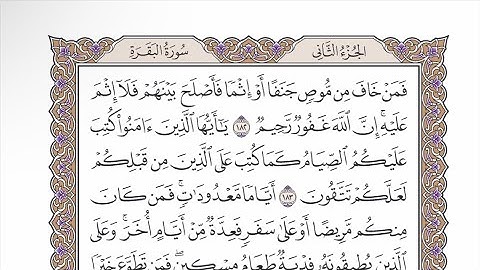 سُورَةُ البَقَرَةِ الجُزْءُ الثَّانِي
فَمَنْ خَافَ مِن مُّوصٍ جَنَفًا أَوْ إِثْمًا فَأَصْلَحَ بَيْنَهُمْ فَلَآ إِثْمَ
عَلَيْهِۚ إِنَّ ٱللَّهَ غَفُورٌ رَّحِيمٌ ١٨٢ يَٰٓأَيُّهَا ٱلَّذِينَ ءَامَنُوا۟ كُتِبَ
عَلَيْكُمُ ٱلصِّيَامُ كَمَا كُتِبَ عَلَى ٱلَّذِينَ مِن قَبْلِكُمْ
لَعَلَّكُمْ تَتَّقُونَ ١٨٣ أَيَّامًا مَّعْدُودَٰتٍۚ فَمَن كَانَ
مِنكُم مَّرِيضًا أَوْ عَلَىٰ سَفَرٍ فَعِدَّةٌ مِّنْ أَيَّامٍ أُخَرَۚ وَعَلَى
ٱلَّذِينَ يُطِيقُونَهُۥ فِدْيَةٌ طَعَامُ مِسْكِينٍۖ فَمَن تَطَوَّعَ خَيْرًا